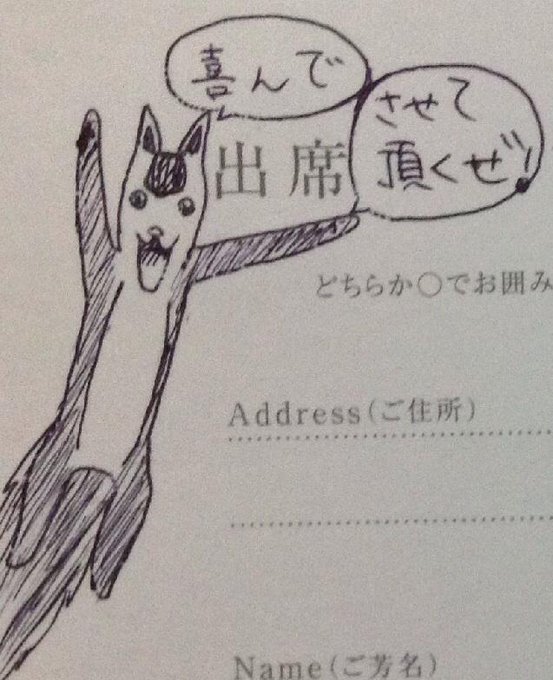 喜んで
出席
させて
頂くぜ!
どちらか○でお囲み
Address(ご住所)
Name(ご芳名)